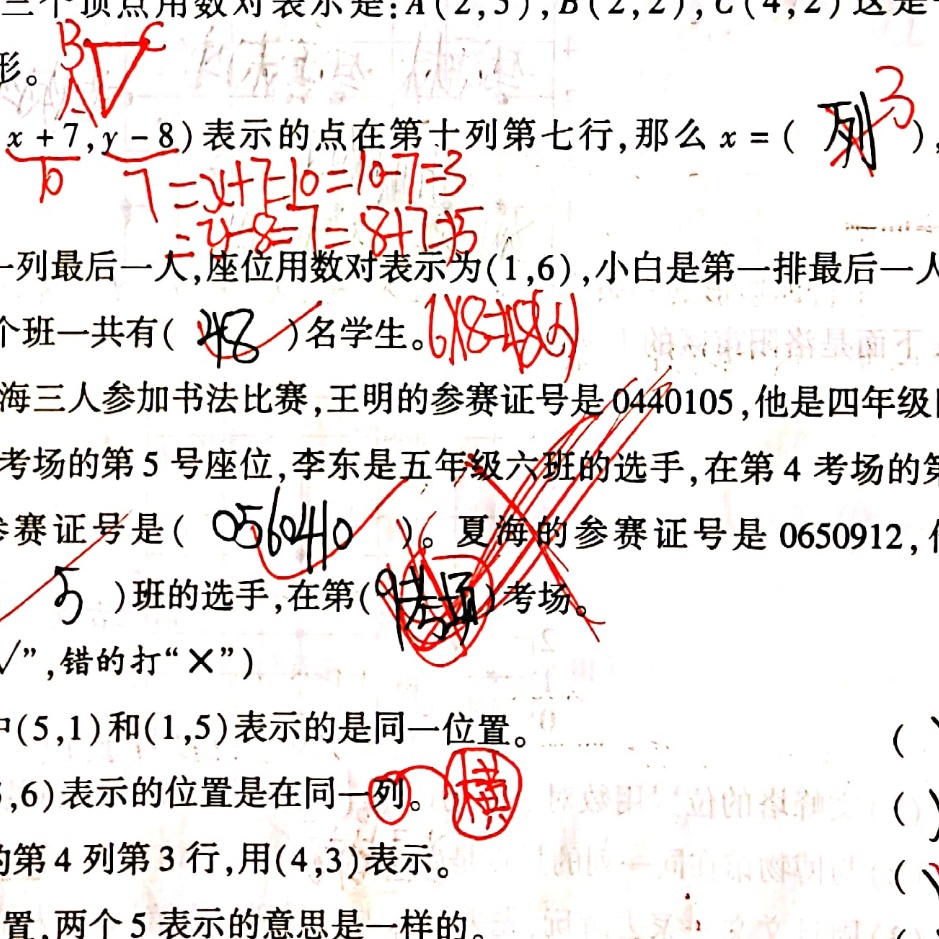 三个顶点用数对表示是:A(2,5),B(2,2),C(4,2)这是
B C
形。
A
x+7,y-8)表示的点在第十列第七行,那么x=( 列 )3,
10 7 =x+7=10=10-7=3
=y-8=7=8+7=15
一列最后一人,座位用数对表示为(1,6),小白是第一排最后一人
个班一共有( 48 )名学生。6×8=48(人)
海三人参加书法比赛,王明的参赛证号是0440105,他是四年级
考场的第5号座位,李东是五年级六班的选手,在第4考场的第
参赛证号是( 0560410 )。夏海的参赛证号是0650912,
5 )班的选手,在第( 9考场 )考场。
√”,错的打“×”)
中(5,1)和(1,5)表示的是同一位置。 (
,6)表示的位置是在同一列。横 (
的第4列第3行,用(4,3)表示。 (
置,两个5表示的意思是一样的。